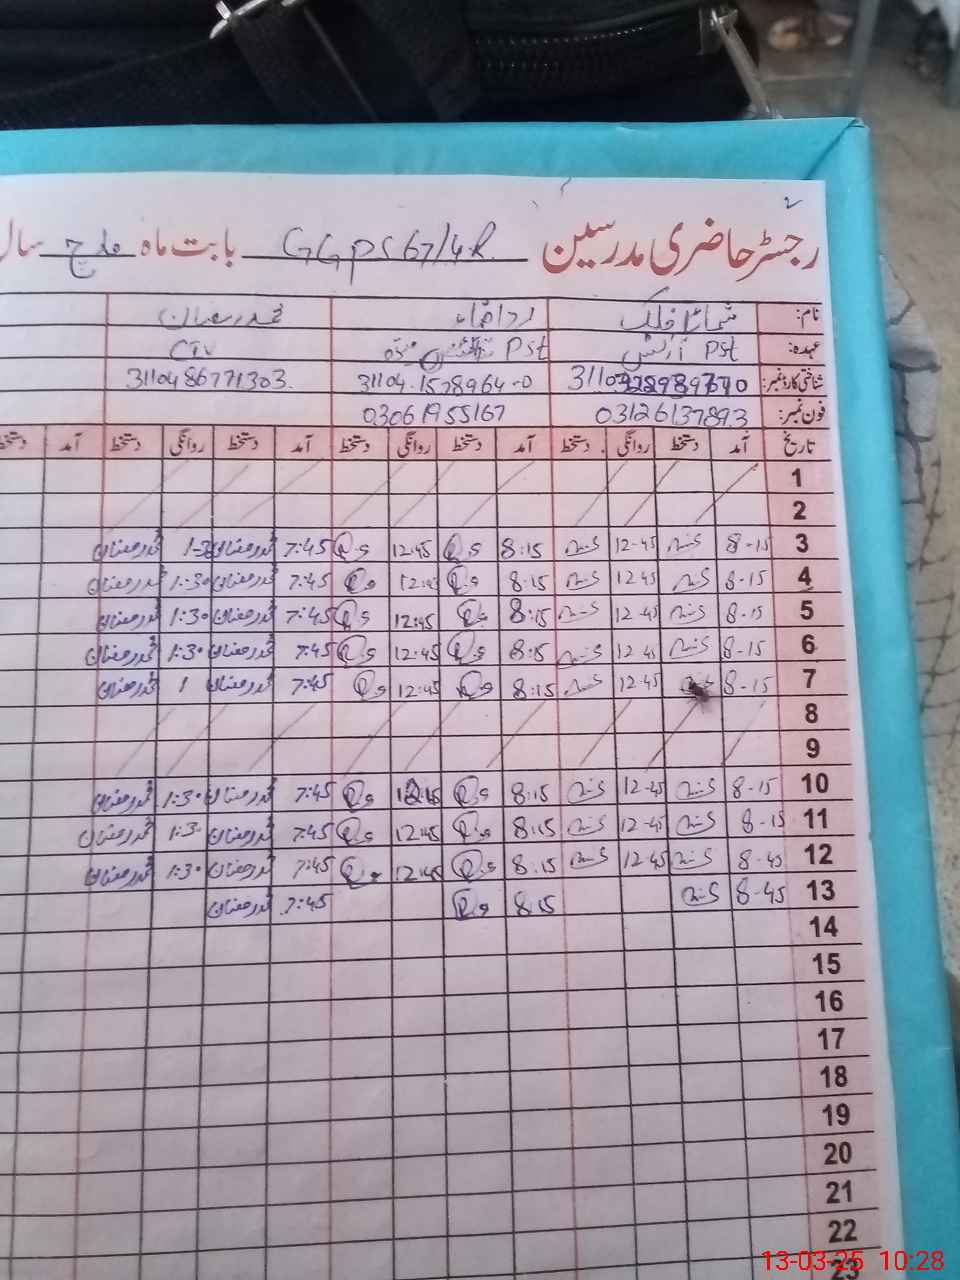 رجسٹر حاضری مدرسین GGPS 67/4.R بابت ماہ مارچ سال
نام: شمائلہ فلک محمد رمضان
عہدہ: Pst Pst CIV
شناختی کارڈ نمبر: 31104.1578964-0 3110486771303.
فون نمبر: 03126137893 03061955167
تاریخ آمد دستخط روانگی دستخط آمد دستخط روانگی دستخط آمد دستخط روانگی دستخط آمد دستخط
1
2
3 8-15 12-45 8:15 12:45 7:45 محمد رمضان 1-30 محمد رمضان
4 8-15 12 45 8:15 12:45 7:45 محمد رمضان 1:30 محمد رمضان
5 8-15 12-45 8:15 12:45 7:45 محمد رمضان 1:30 محمد رمضان
6 8-15 12 45 8:15 12:45 7:45 محمد رمضان 1:30 محمد رمضان
7 8-15 12-45 8:15 12:45 7:45 محمد رمضان 1 محمد رمضان
8
9
10 8-15 12-45 8:15 12:45 7:45 محمد رمضان 1:30 محمد رمضان
11 8-15 12-45 8:15 12:45 7:45 محمد رمضان 1:30 محمد رمضان
12 8-45 12-45 8:15 12:45 7:45 محمد رمضان 1:30 محمد رمضان
13 8-45 8:15 7:45 محمد رمضان
14
15
16
17
18
19
20
21
22
23
13-03-25 10:28